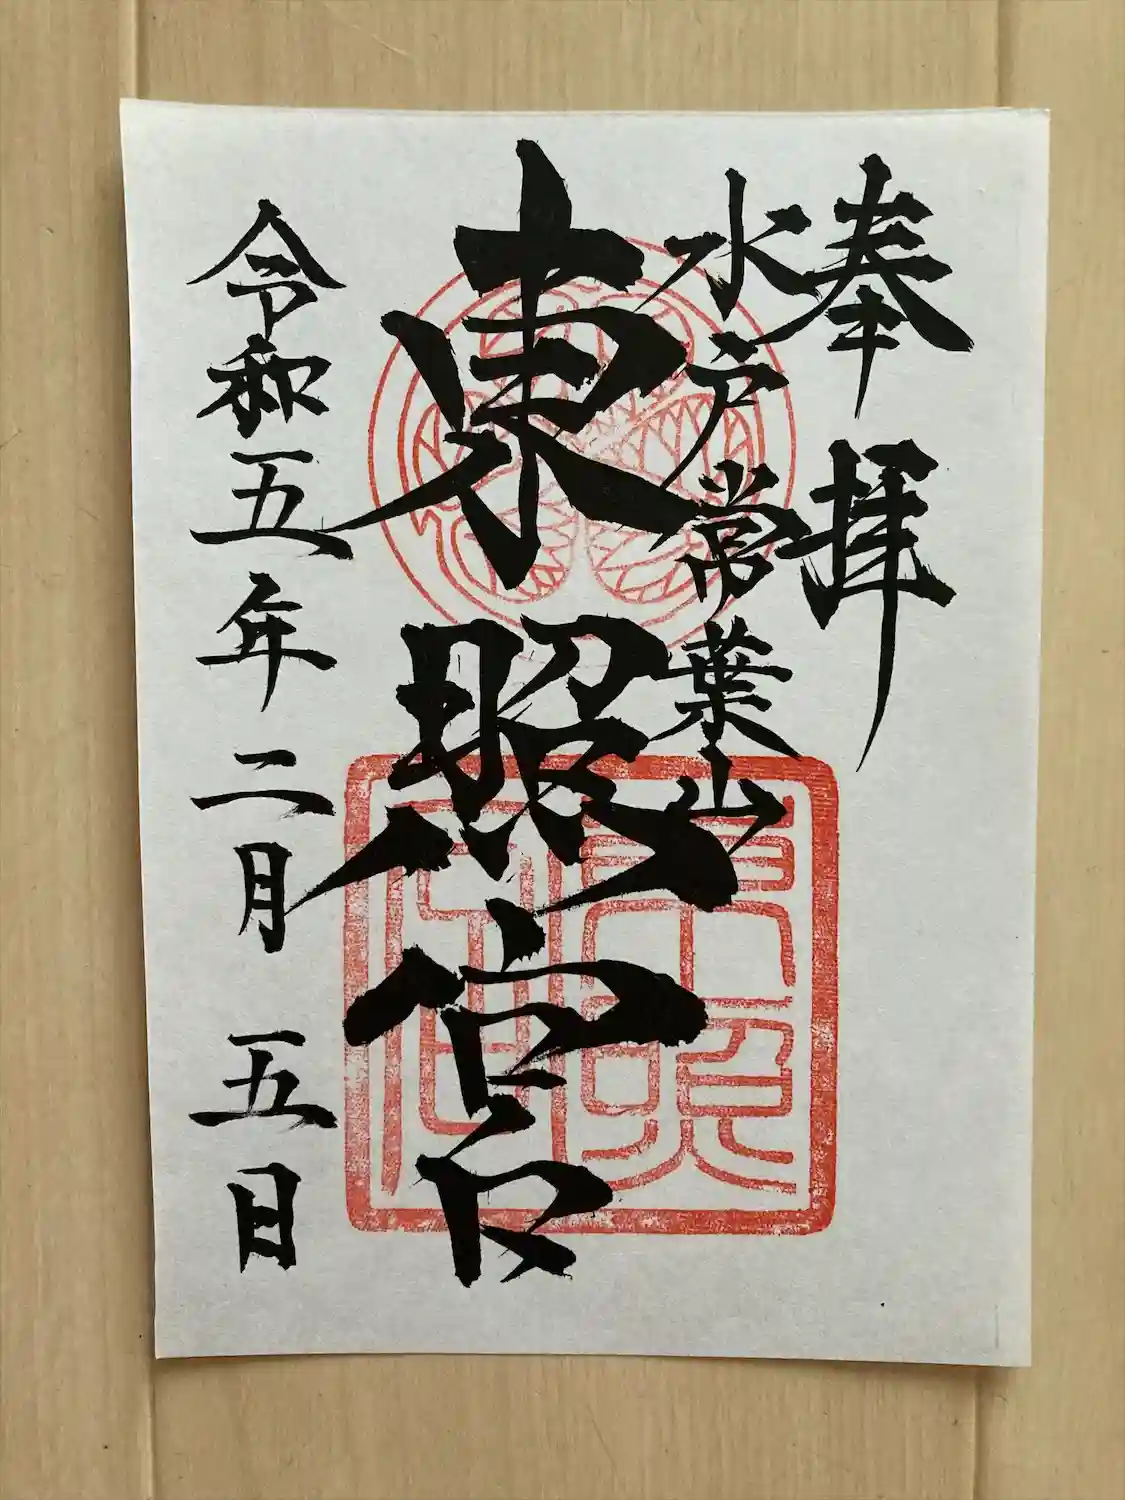 奉拝
水戸常葉山
東照宮
令和五年二月五日
東照宮印